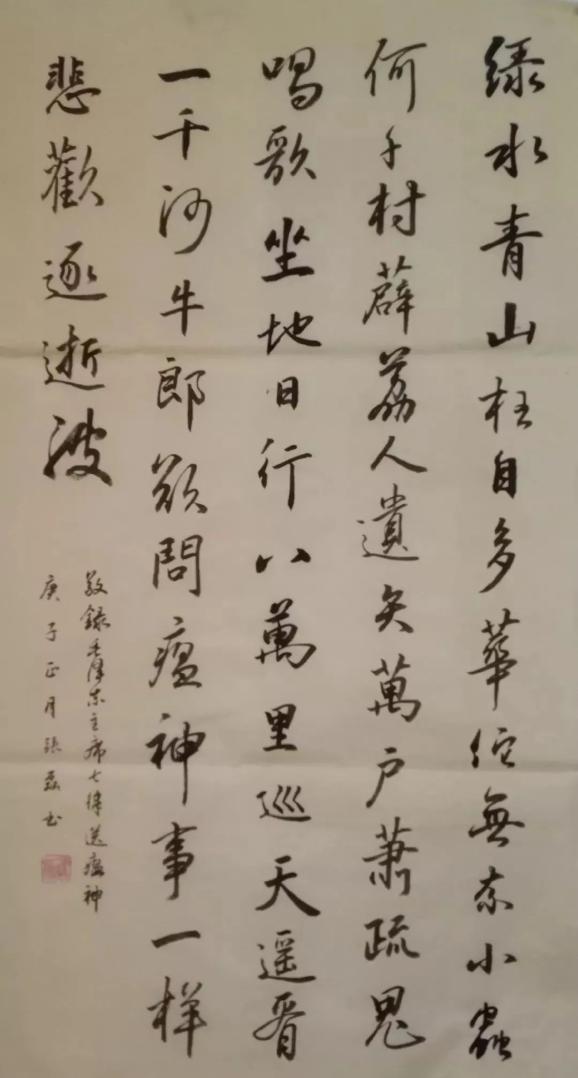 绿水青山枉自多華佗無奈小蟲
何千村薜荔人遺矢萬户蕭疏鬼
唱歌坐地日行八萬里巡天遥看
一千河牛郎欲問瘟神事一样
悲歡逐逝波
敬録毛澤東主席七律送瘟神
庚子正月張磊书